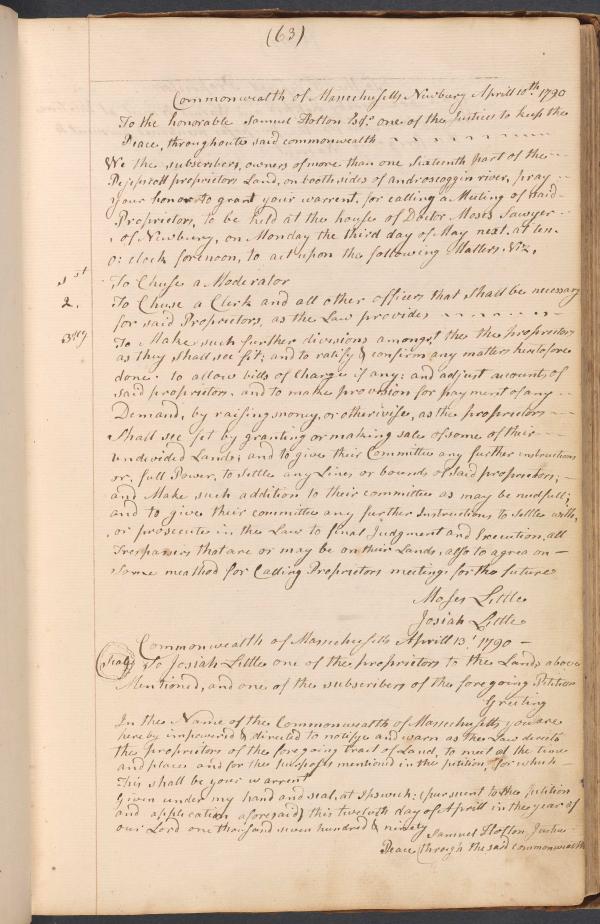 (63)
Commonwealth of Massechusetts Newbury Aprill 10th 1790
To the honorable Samuel Holton Esqr. one of the Justices to keep the
Peace, throughoute said commonwealth
We the subscribers, owners of more than one Sixteenth part of the
Pejepscott proprietors Land, on booth sides of androscoggin river, pray
your honor to grant your warrent, for calling a Meeting of said
Proprietors, to be held at the house of Doctor Moses Sawyer
of Newbury, on Monday the third day of May next, at ten
o: clock forenoon, to act upon the following Matters. Viz,
1st To Chuse a Moderator
2. To Chuse a Clerk and all other officers that shall be necessary
for said Proprietors, as the Law provides
3lly To Make such further divisions amongst the the proprietors
as they shall see fit; and to ratify & confirm any matters heretofore
done. to allow bills of Charge if any; and adjust accounts of
said proprietors. and to make provision for payment of any
Demand, by raising money, or otherwise, as the proprietors
Shall see fit by granting or making sale of some of their
undivided Lands; and to give their Committee any further instructions
or, full Power, to settle any Lines or bounds of said proprietors;
and Make such addition to their committee as may be needfull;
and to give their committee any further Instructions, to settle with,
or prosecute in the Law to final Judgment and Execution, all
Trespassers that are or may be on their Lands, also to agrea on
Some meathod for Calling Proprietors meetings for the future
Moses Little
Josiah Little
Commonwealth of Massechusetts Aprill 13. 1790
(Seal) To Josiah Little one of the proprietors to the Lands above
Mentioned, and one of the subscribers of the foregoing Petition
Greeting
In the Name of the Commonwealth of Massechusetts you are
hereby impowered & directed to notifye and warn as the Law directs
the proprietors of the foregoing tract of Land, to meet at the time
and place and for the purposes mentioned in the petition, for which
This shall be your warrent
Given under my hand and seal, at Ipswich: (pursuent to the petition
and application aforesaid) this twelvth day of Aprill in the year of
our Lord one thousand seven hundred & ninety
Samuel Holton, Justice
Peace through the said commonwealth